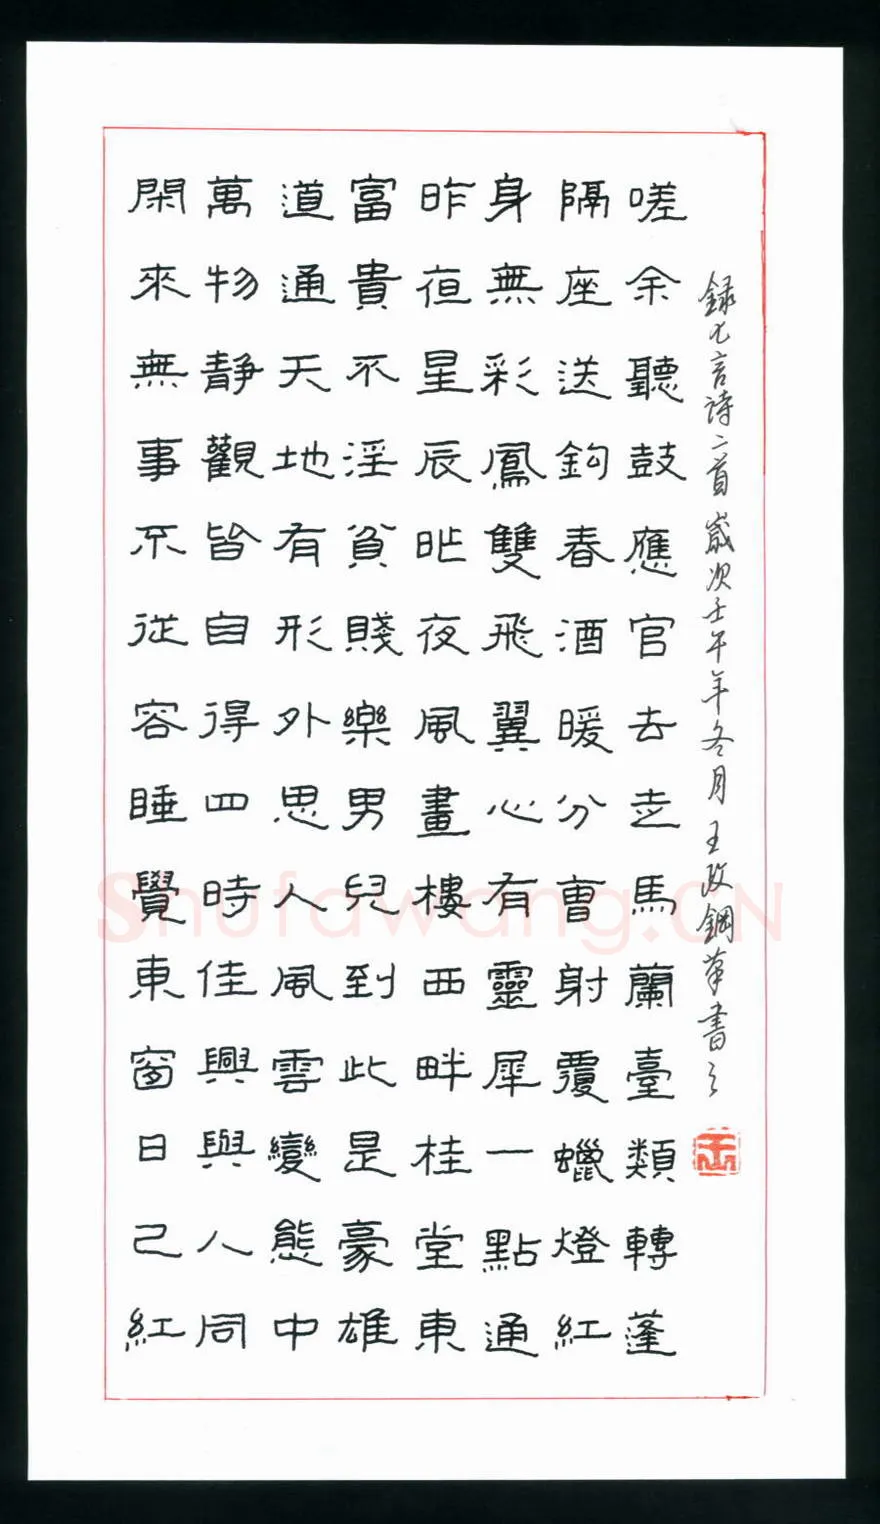 閑來無事不從容睡覺東窗日己紅
萬物靜觀皆自得四時佳興與人同
道通天地有形外思人風雲變態中
富貴不淫貧賤樂男兒到此是豪雄
昨夜星辰昨夜風畫樓西畔桂堂東
身無彩鳳雙飛翼心有靈犀一點通
隔座送鈎春酒暖分曹射覆蠟燈紅
嗟余聽鼓應官去走馬蘭臺類轉蓬
録七言詩二首 歲次壬午年冬月 王政鋼筆書之
Shufawang.CN